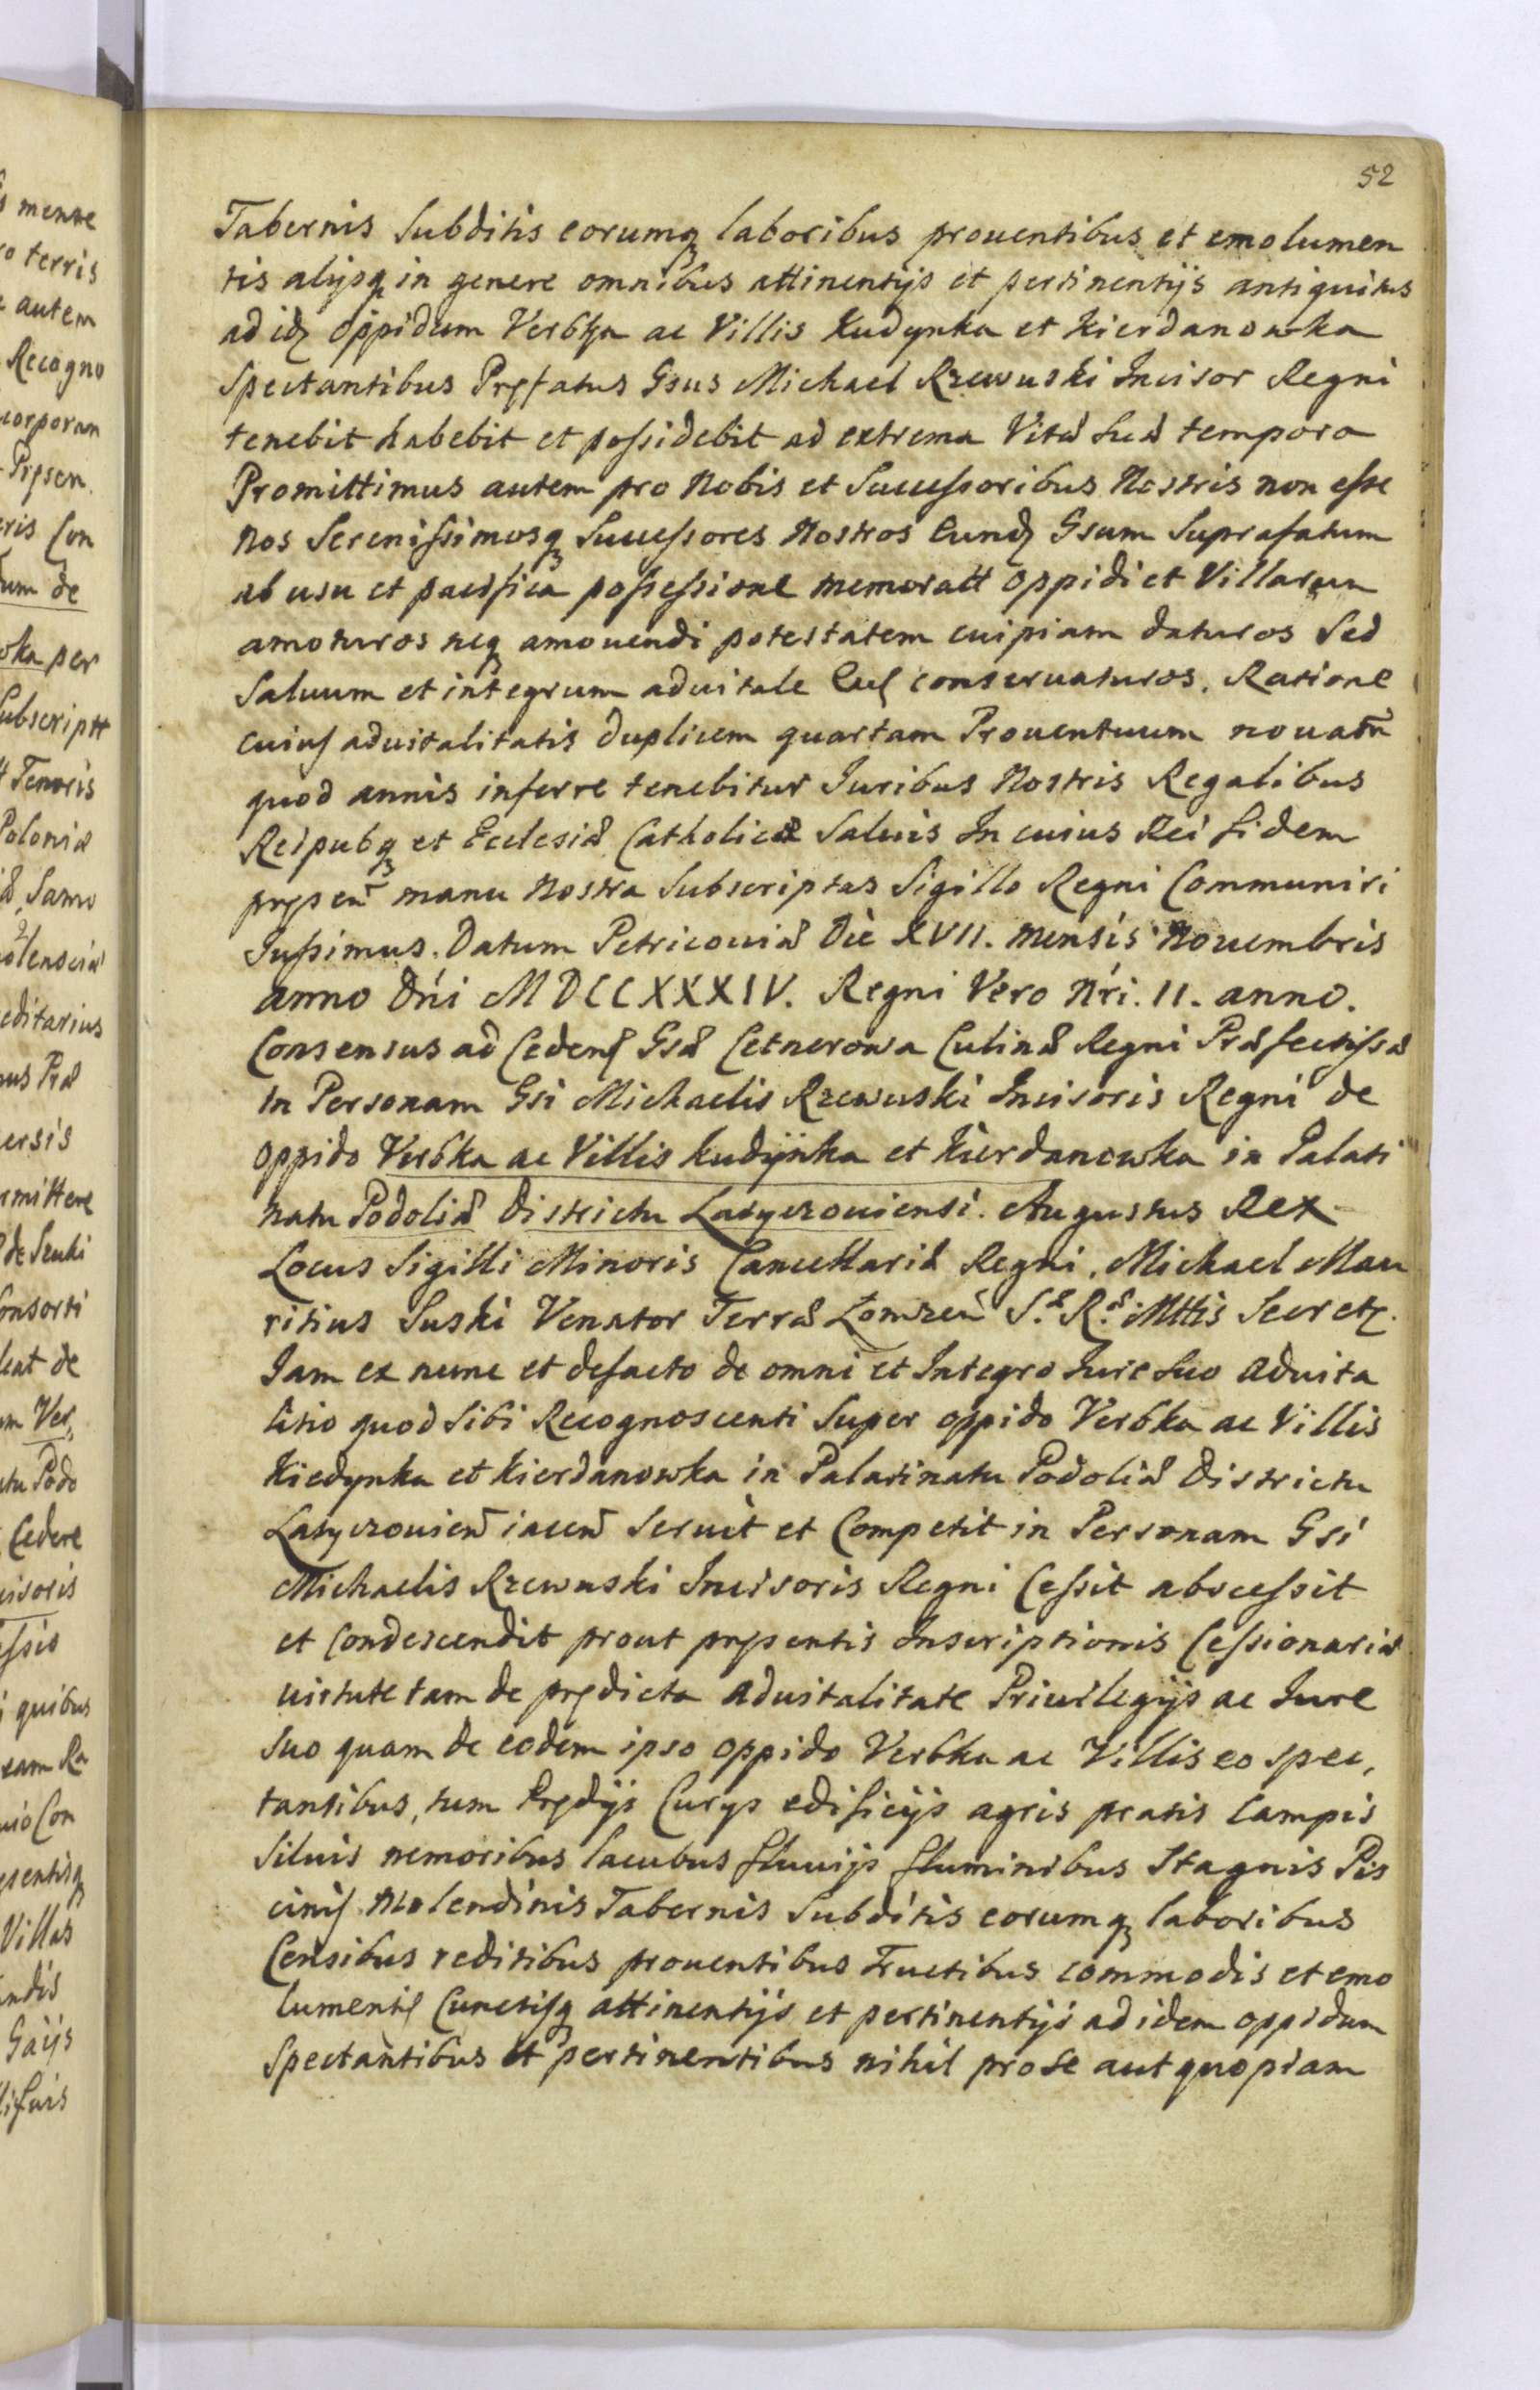 52
Tabernis Subditis eorumq₃ laboribus prouentibus et emolumen
tis alijsq₃ in genere omnibus attinentijs et pertinentijs antiquitus
ad idẓ oppidum Verbka ac Villis Kudynka et Kierdanowka
Spectantibus Pręfatus Gsus Michael Rzewuski Incisor Regni
tenebit habebit et poſsidebit ad extrema Vitæ suæ tempora
Promittimus autem pro Nobis et Succeſsoribus Nostris non eſse
Nos Sereniſsimosq₃ Succeſsores Nostros Eundẓ Gsum Suprafatum
ab usu et pacifica poſseſsione memoratt oppidi et Villarum
amoturos neq₃ amouendi potestatem cuipiam daturos Sed
Saluum et integrum aduitale Euſ conseruaturos. Ratione
cuiuſ aduitalitatis duplicem quartam Prouentuum nouatn̄
quod annis inferre tenebitur Iuribus Nostris Regalibus
Reipubq₃ et Ecclesiæ Catholicæ Saluis In cuius Rei fidem
pręsen̄ manu Nostra Subscriptas Sigillo Regni Communiri
Iuſsimus. Datum Petricouiæ Die XVII. mensis Nouembris
anno Dńi MDCCXXXIV. Regni Vero Nŕi. II. anno.
Consensus ad Cedenſ Gsæ Cetnerowa Culinæ Regni Præfectiſsæ
in Personam Gsi Michaelis Rzewuski Incisoris Regni de
oppido Verbka ac Villis kudynka et Kierdanowka in Palati
natu Podoliæ Districtu Latyczouiensi. Augustus Rex
Locus Sigilli Minoris Cancellariæ Regni. Michael Mau
ritius Suski Venator Terræ Lomzen̄ S.æ R.æ Mttis Secretẓ.
Iam ex nunc et defacto de omni et Integro Iure suo aduita
litio quod Sibi Recognoscenti Super oppido Verbka ac Villis
Kiedynka et Kierdanowka in Palatinatu Podoliæ Districtu
Latyczouien̄ iacen̄ Seruit et Competit in Personam Gsi
Michaelis Rzewuski Incisoris Regni Ceſsit absceſsit
et Condescendit prout pręsentis Inscriptionis Ceſsionariæ
uirtute tam de prędicta aduitalitate Priuilegijs ac Iure
Suo quam de eodem ipso oppido Verbka ac Villis eo spec,
tantibus, tum Prędijs Curys edificijs agris pratis Campis
Siluis nemoribus lacubus fluuijs fluminibus Stagnis Pis
ciniſ Molendinis Tabernis Subditis eorumq₃ laboribus
Censibus reditibus prouentibus Fructibus commodis et emo
lumentiſ Cunctisq₃ attinentijs et pertinentijs ad idem oppidum
Spectantibus et pertinentibus nihil pro se aut quopiam